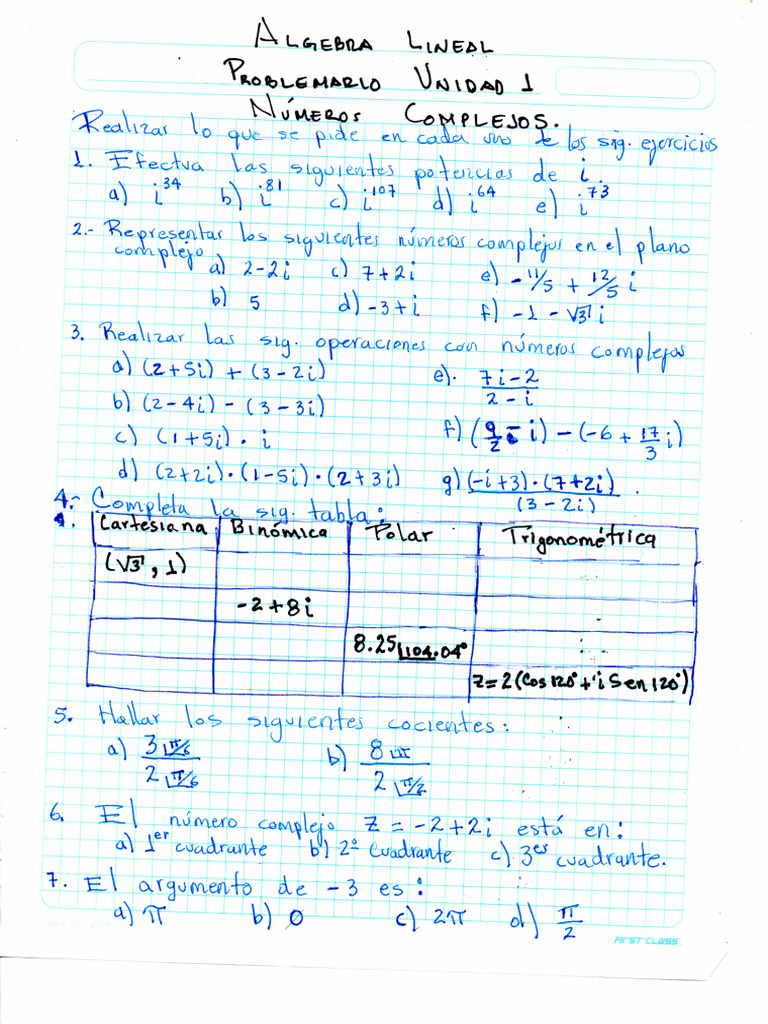 ALGEBRA LINEAL
PROBLEMARIO UNIDAD 1
NÚMEROS COMPLEJOS.
Realizar lo que se pide en cada uno de los sig. ejercicios
1. Efectua las siguientes potencias de i.
a) i^34 b) i^81 c) i^107 d) i^64 e) i^73
2.- Representar los siguientes números complejos en el plano
complejo a) 2-2i c) 7+2i e) -11/5 + 12/5 i
b) 5 d) -3+i f) -1-√3 i
3. Realizar las sig. operaciones con números complejos
a) (2+5i) + (3-2i) e). 7i-2 / 2-i
b) (2-4i) - (3-3i) f) (9/2 - i) - (-6 + 17/3 i)
c) (1+5i) · i
d) (2+2i)·(1-5i)·(2+3i) g) (-i+3)·(7+2i) / (3-2i)
4.- Completa la sig. tabla:
Cartesiana Binómica Polar Trigonométrica
(√3, 1)
-2+8i
8.25∟104.04°
z=2(Cos120°+iSen120°)
5. Hallar los siguientes cocientes:
a) 3∟π/6 / 2∟π/6 b) 8∟π / 2∟π/2
6. El número complejo z = -2+2i está en:
a) 1er cuadrante b) 2º cuadrante c) 3er cuadrante.
7. El argumento de -3 es:
a) π b) 0 c) 2π d) π/2
FIRST CLASS